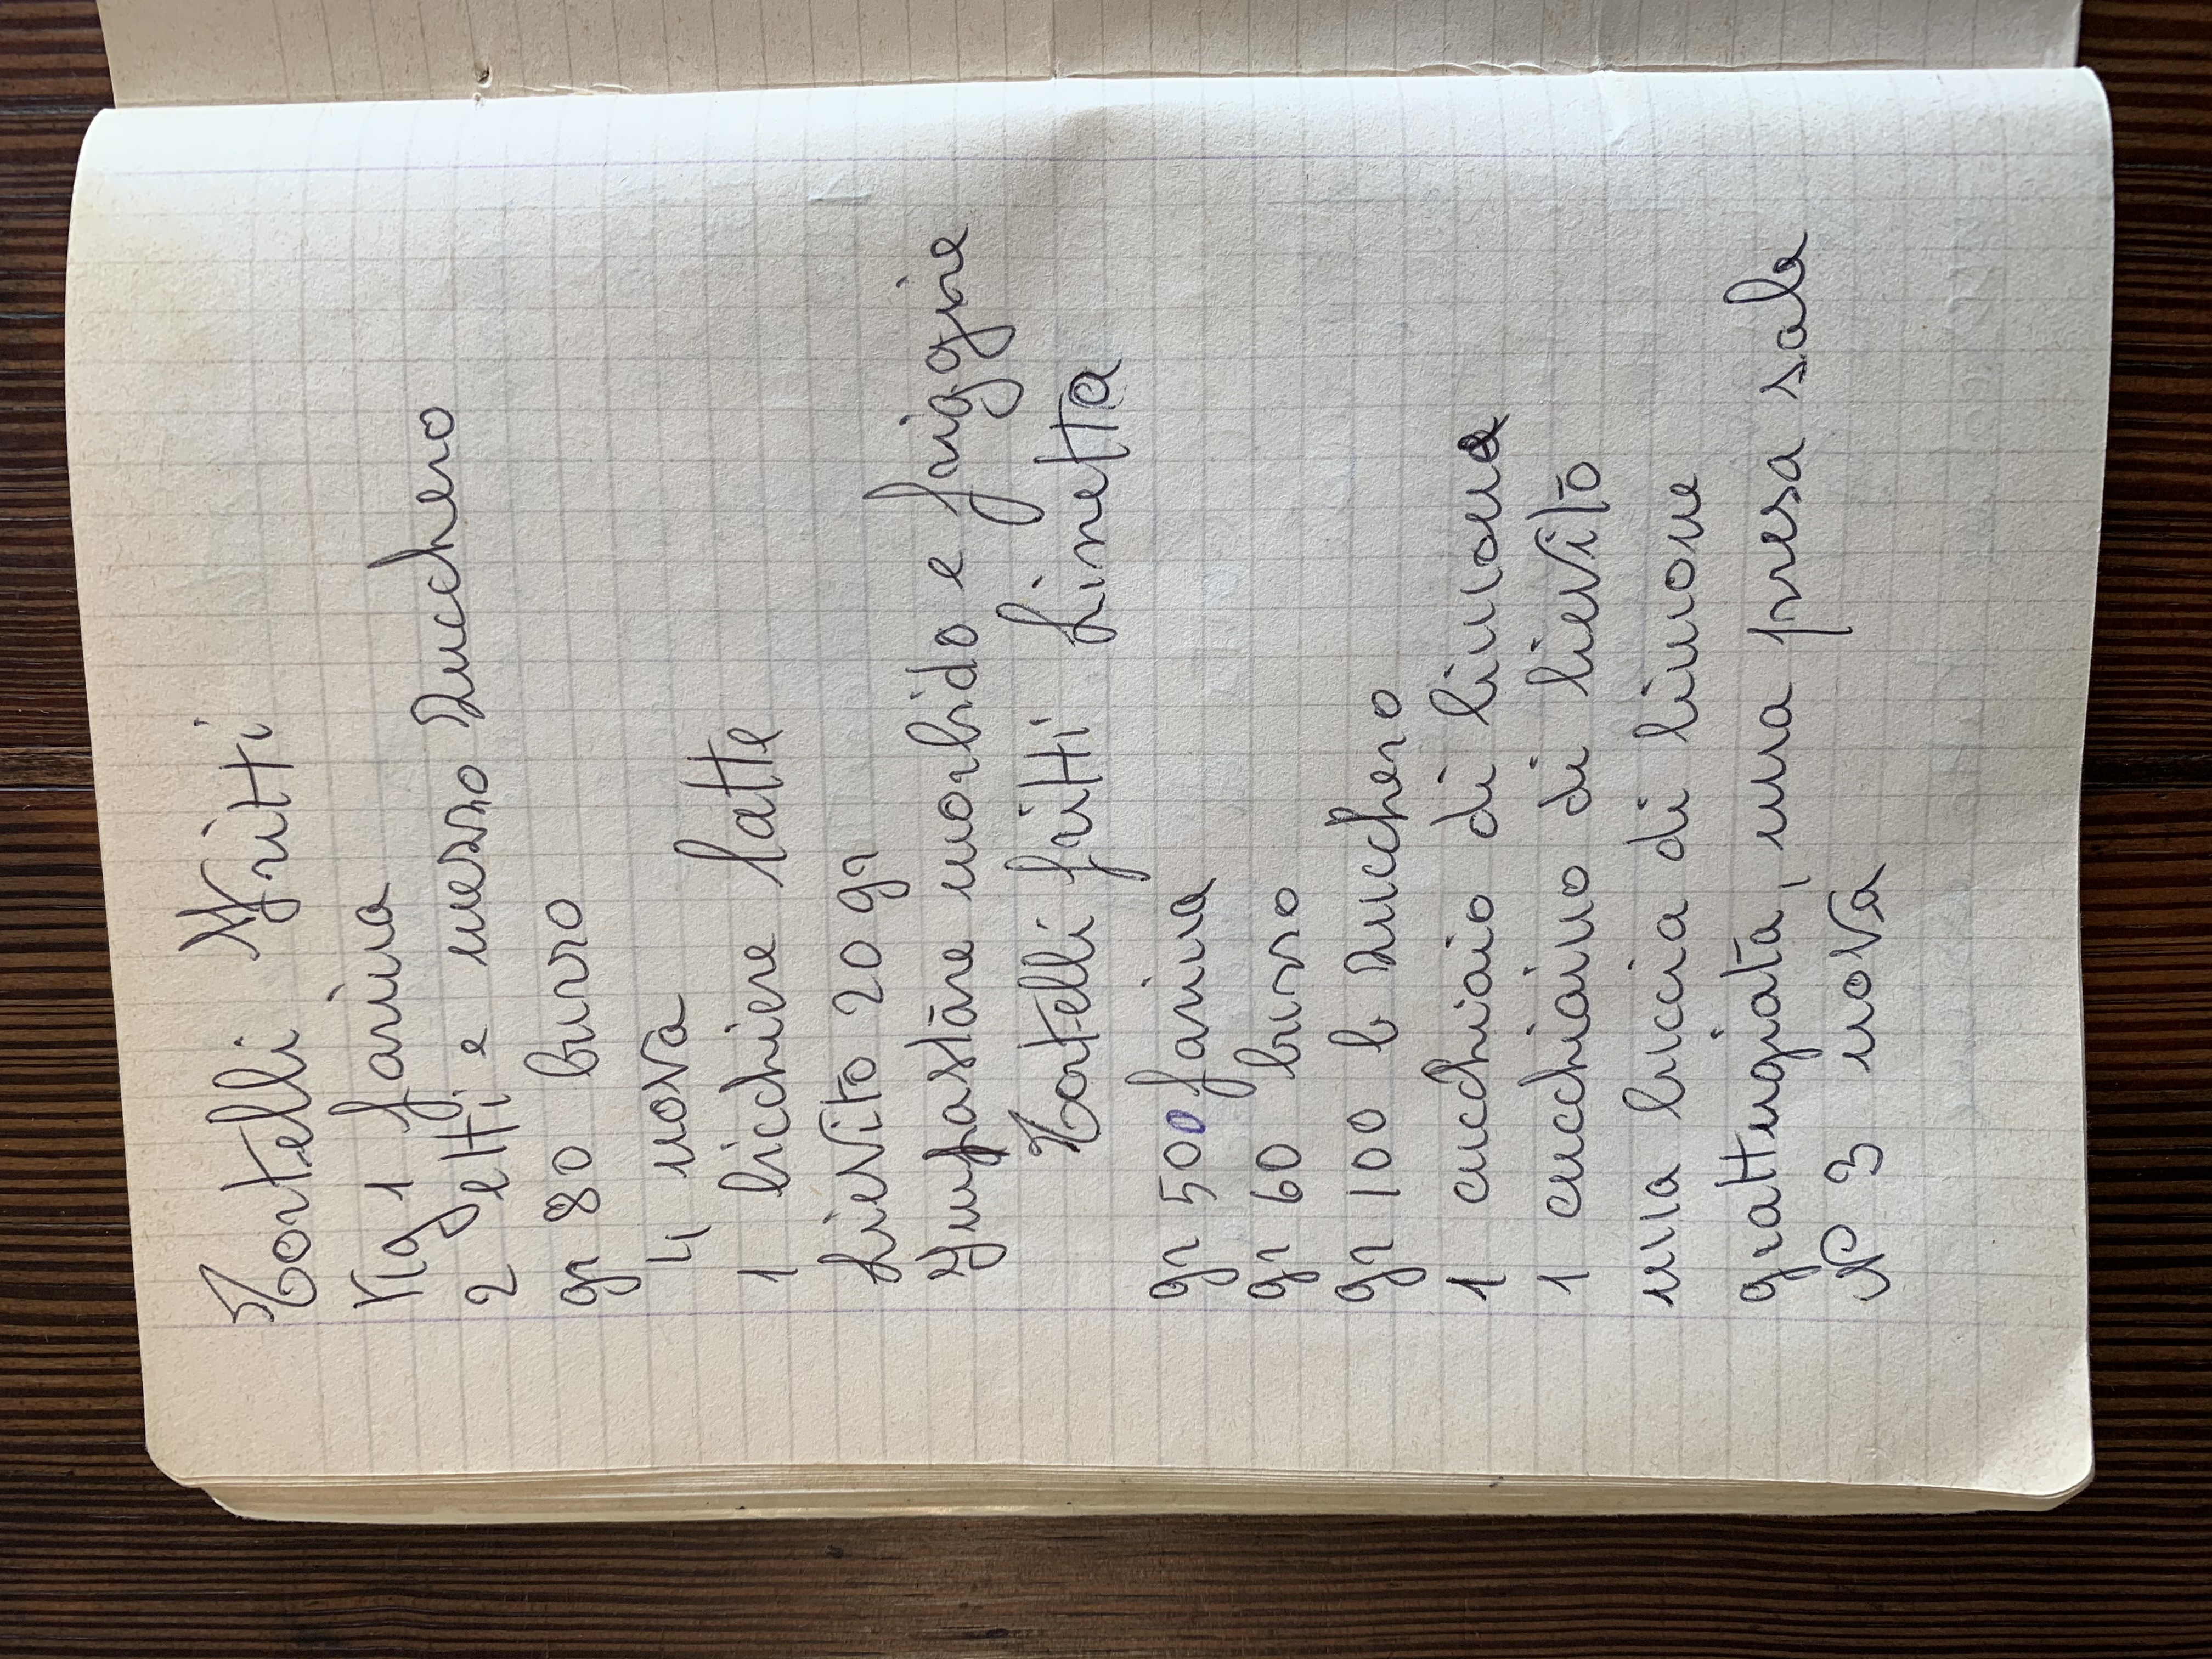 Tortelli Fritti
Kg 1 farina
2 etti e mezzo zucchero
gr 80 burro
4 uova
1 bicchiere latte
Lievito 20 gr
Impastare morbido e friggire
Tortelli fritti Linetta
gr 500 farina
gr 60 burro
gr 100 b zucchero
1 cucchiaio di limone
1 cucchiaino di lievito
una buccia di limone
grattugiata, una presa sale
N 3 uova